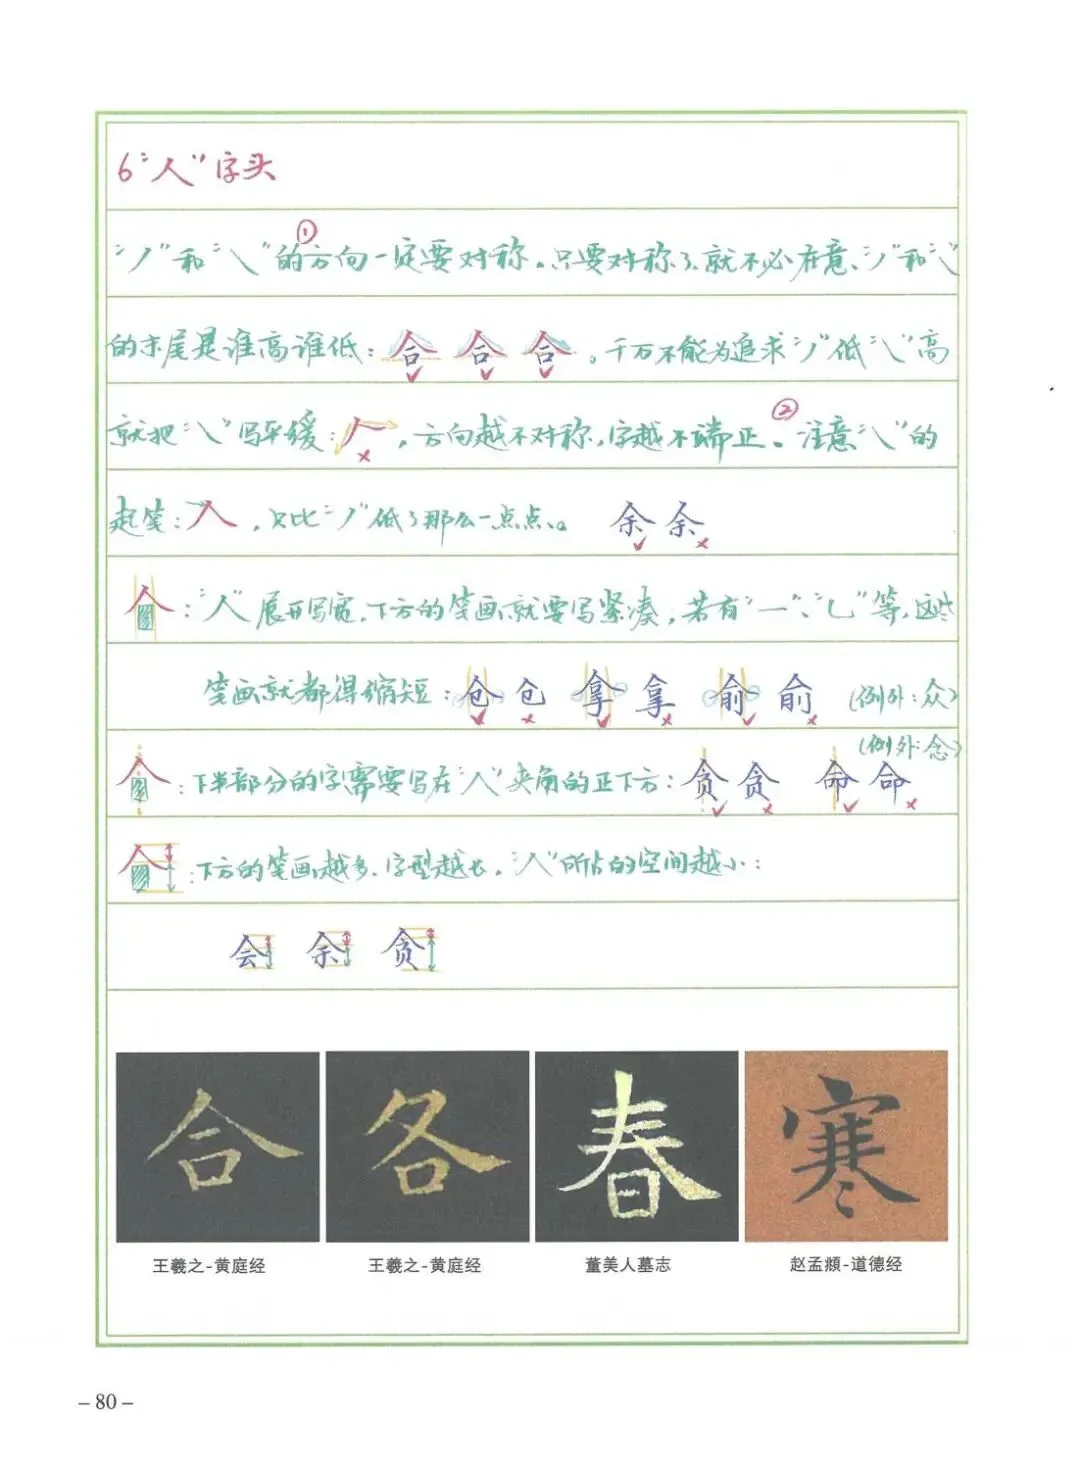 6 “人”字头
“丿”和“㇏”的①方向一定要对称。只要对称了就不必在意、“丿”和“㇏”
的末尾是谁高谁低：合 合 合。千万不能为追求“丿”低“㇏”高
就把“㇏”写平缓：人，方向越不对称，字越不端正。②注意“㇏”的
起笔：人，只比“丿”低了那么一点点。 余 余
“人”展开写宽，下方的笔画就要写紧凑，若有“一”、“乚”等，这些
笔画就都得缩短：仓 仓 拿 拿 俞 俞 （例外：众）
（例外：念）
：下半部分的字需要写在“人”夹角的正下方：贪 贪 命 命
：下方的笔画越多，字型越长，“人”所占的空间越小：
会 余 贪
合 各 春 寒
王羲之-黄庭经 王羲之-黄庭经 董美人墓志 赵孟頫-道德经
– 80 –